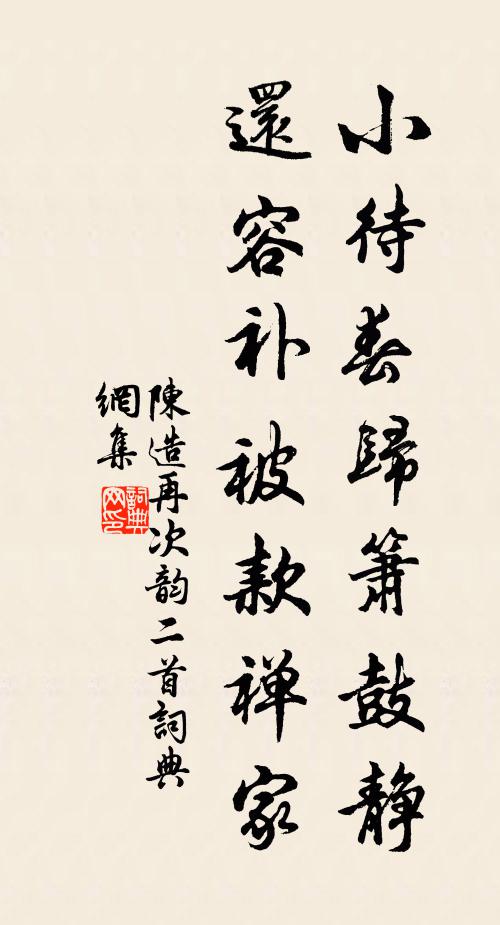 小待春歸簫鼓静
還容补被款禅家
陳造再次韵二首詞典
網集
詞典網印